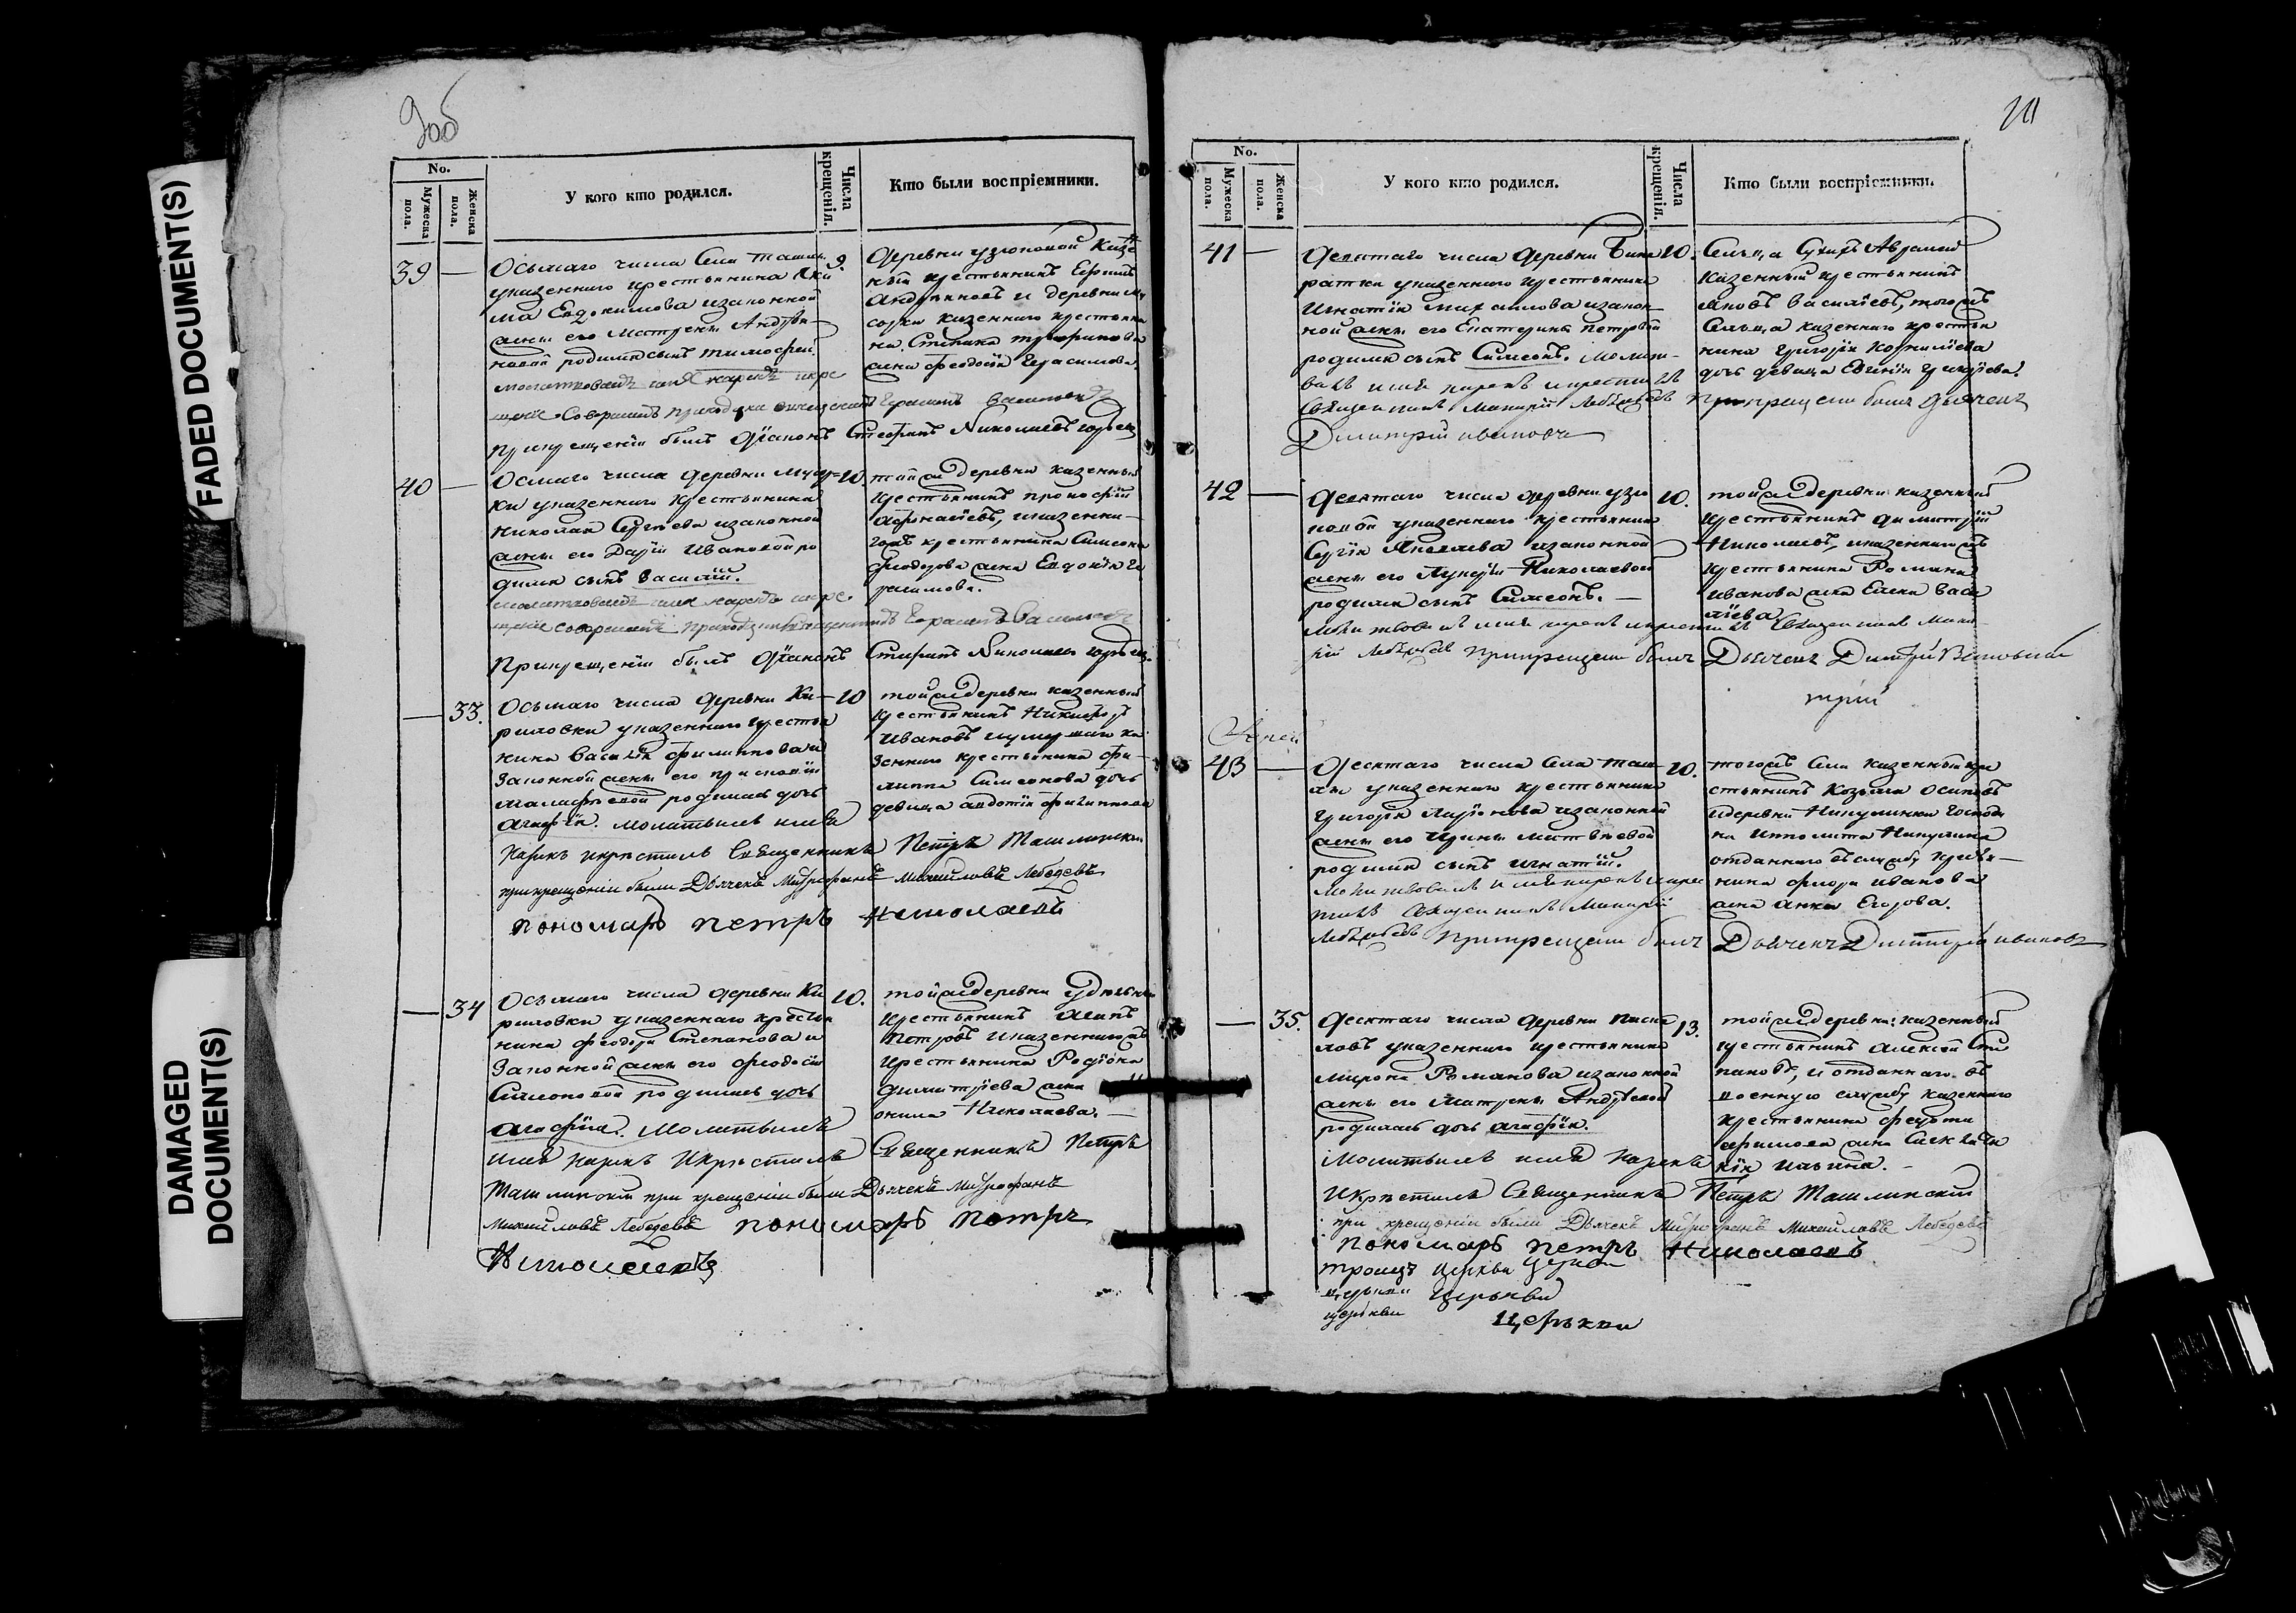 FADED DOCUMENT(S)
DAMAGED
DOCUMENT(S)
9об
No.
Мужеска пола.
Женска пола.
У кого кто родился.
Числа крещенія.
Кто были воспріемники.
39 —
Осьмаго числа Села Ташлы
у казеннаго крестьянина Яки
ма Евдокимова изаконной
жены его Матрены Андрея
новой родился сынъ Тимофей.
молитвовалъ имя нарекъ икре
щеніе Совершилъ приходскій священникъ Герасимъ Васильевъ
При крещеніи былъ Діаконъ Стефанъ Николаевъ
9.
Деревни Узюковой Казе
ный крестьянинъ Ефимъ
Андреяновъ и деревни Му
сорки казеннаго крестьяни
на Степана Трофимова
жена Феодосія Герасимова.
40 —
Осмаго числа деревни Мусор=
ки у казеннаго крестьянина
Николая Сергѣева изаконной
жены его Даріи Ивановой ро
дился сынъ Василій.
молитвовалъ имя нарекъ икре
щеніе совершилъ приходскій священникъ Герасимъ Васильевъ
При крещеніи былъ Діаконъ Стефанъ Николаевъ
10.
той же деревни казенный
крестьянинъ Прокофій
Афонасіевъ, и казенна-
гожъ крестьянина Симеона
Феодорова жена Евдокія Ге
расимова.
— 33.
Осьмаго числа деревни Ки-
риловки у казеннаго крестья
нина Василія Филиппова и
Законной жены его Прасковіи
Малафѣевой родилась дочь
Агафія. Молитвилъ имя
Нарекъ икрестилъ Священникъ Петръ Ташлинскій
при крещеніи были Дьячекъ Митрофанъ Михайловъ Лебедевъ
пономарь Петръ Николаевъ
10
той же деревни казенный
крестьянинъ Никифоръ
Ивановъ и умершаго ка
зеннаго крестьянина Фи-
липпа Симеонова дочь
девица Авдотія Филиппова
— 34
Осьмаго числа деревни Ки
риловки у казеннаго крестья
нина Феодора Степанова и
Законной жены его Феодосіи
Симеоновой родилась дочь
Агафія. Молитвилъ
имя нарекъ Икрестилъ Священникъ Петръ
Ташлинскій при крещеніи были Дьячекъ Митрофанъ
Михайловъ Лебедевъ пономарь Петръ
Николаевъ
10.
той же деревни удѣльны
крестьянинъ
Петровъ и казеннагожъ
крестьянина Родіона
Димитріева жена
Николаева. —
No.
Мужеска пола.
Женска пола.
У кого кто родился.
Числа крещенія.
Кто были воспріемники.
41 —
Девятаго числа деревни Бина
ратки у казеннаго крестьянина
Игнатія Михаилова изакон-
ной жены его Екатерины Петровой
родился сынъ Симеонъ. Молит-
валъ имя нарекъ и крестилъ
Священникъ Макарій Лебедевъ При крещеніи былъ Дьячекъ
Димитрій Ивановъ
10.
Сельца Авралей
казенный крестьянинъ
Яковъ Василіевъ, тогожъ
Сельца казеннаго крестья
нина Григорія Корниліева
дочь девица Евгенія Григоріева.
42 —
Девятаго числа деревни Узю
повой у казеннаго крестьянина
Сергія Яковлева изаконной
жены его Лукеріи Николаевой
родился сынъ Симеонъ. —
Молитвовалъ имя нарекъ и крестилъ Священникъ Мака-
рій Лебедевъ При крещеніи былъ Дьячекъ Димитрій Ивановъ
трій
10.
той же деревни казенный
крестьянинъ Димитрій
Николаевъ, и казеннагожъ
крестьянина Романа
Иванова жена Елена Васи
ліева
43 —
Десятаго числа Села Таш-
лы у казеннаго крестьянина
Григорія Ларіонова изаконной
жены его Ирины Матвѣевой
родился сынъ Игнатій.
Молитвовалъ имя нарекъ и крес
тилъ Священникъ Макарій
Лебедевъ При крещеніи былъ Дьячекъ Димитрій Ивановъ
10.
тогожъ Села казенный кре
стьянинъ Козьма Осиповъ
и деревни Никулинки Господи
на Никулина
отданнаго въ службу крестья-
нина Флора Иванова
жена Анна Егорова.
— 35.
Десятаго числа деревни Писка
ловъ у казеннаго крестьянина
Мирона Романова изаконной
жены его Матрены Андреевой
родилась дочь Агафія.
Молитвилъ имя нарекъ
Икрестилъ Священникъ Петръ Ташлинскій
при крещеніи были Дьячекъ Митрофанъ Михайловъ Лебедевъ
пономарь Петръ Николаевъ
13.
той же деревни казенный
крестьянинъ Алексей Сте
пановъ, и отданнаго въ
военную службу казеннаго
крестьянина
Ефимова жена
Ильина. —
Троицъ церкви
церкви
церькви
церкви
церькви